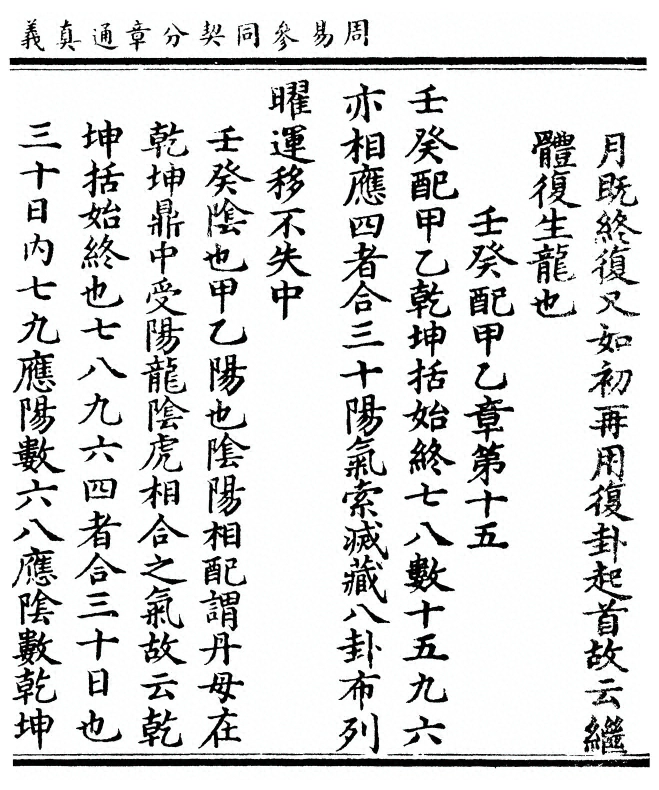 周易參同契分章通真義
月既終復又如初再用復卦起首故云繼
體復生龍也
壬癸配甲乙章第十五
壬癸配甲乙乾坤括始終七八數十五九六
亦相應四者合三十陽氣索滅藏八卦布列
曜運移不失中
壬癸陰也甲乙陽也陰陽相配謂丹母在
乾坤鼎中受陽龍陰虎相合之氣故云乾
坤括始終也七八九六四者合三十日也
三十日内七九應陽數六八應陰數乾坤